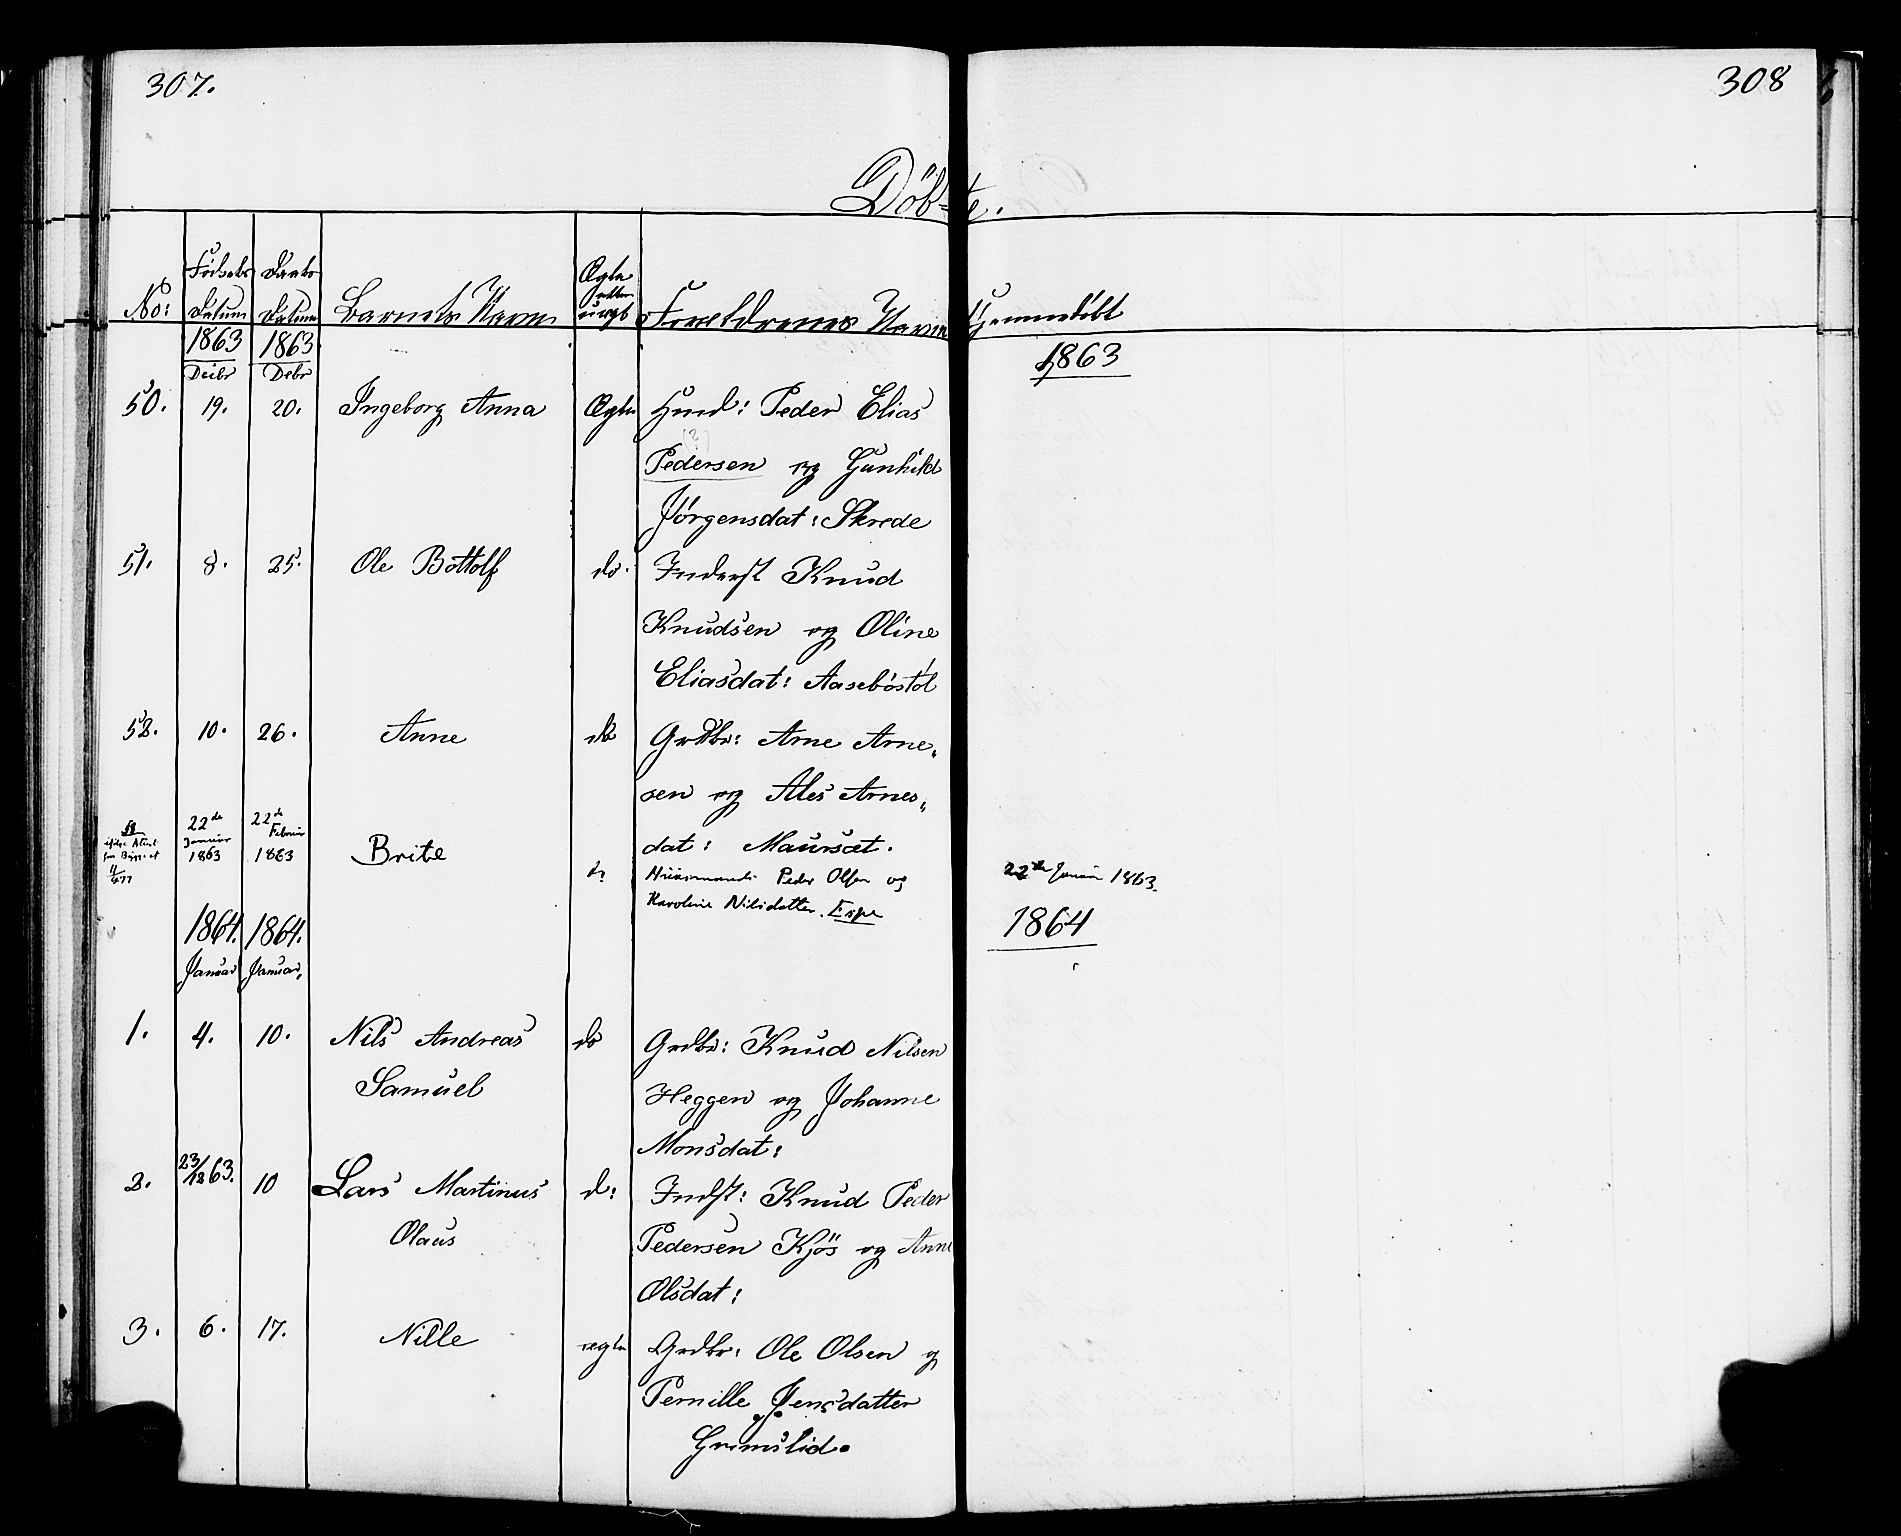 307.
308
Döb-te.
No:
Födsels
Datum
Daabs
Datum
Barnets Navn
Ægte
eller
uægt
Foreldrenes Navne
Hjemmedöbt
1863
Decbr
1863
Debr
1863
50. 19. 20. Ingeborg Anna Ægte Hmd: Peder Elias
(?)
Pedersen og Gunhild
Jörgensdat: Skrede
51. 8. 25. Ole Bottolf do. Inderst Knud
Knudsen og Oline
Eliasdat: Aasebøstøl
52. 10. 26. Anne do Grdbr: Arne Arne„
sen og Ales Arnes„
dat: Maursæt.
22de
Januar
1863
22de
Februar
1863
Brite
do Huusmand Peder Olsen og
Karoline Nilsdatter. Espe
22de Januar 1863.
1864. 1864.
Januar Januar.
1864
1. 4. 10. Nils Andreas do Grdbr: Knud Nilsen
Samuel Heggen og Johanne
Monsdat:
2. 23/12 63. 10 Lars Martinus d: Indst: Knud Peder
Olaus Pedersen Kjös og Anne
Olsdat:
3. 6. 17. Nille ægte Grdbr: Ole Olsen og
Pernille Jensdatter
Grimslid.